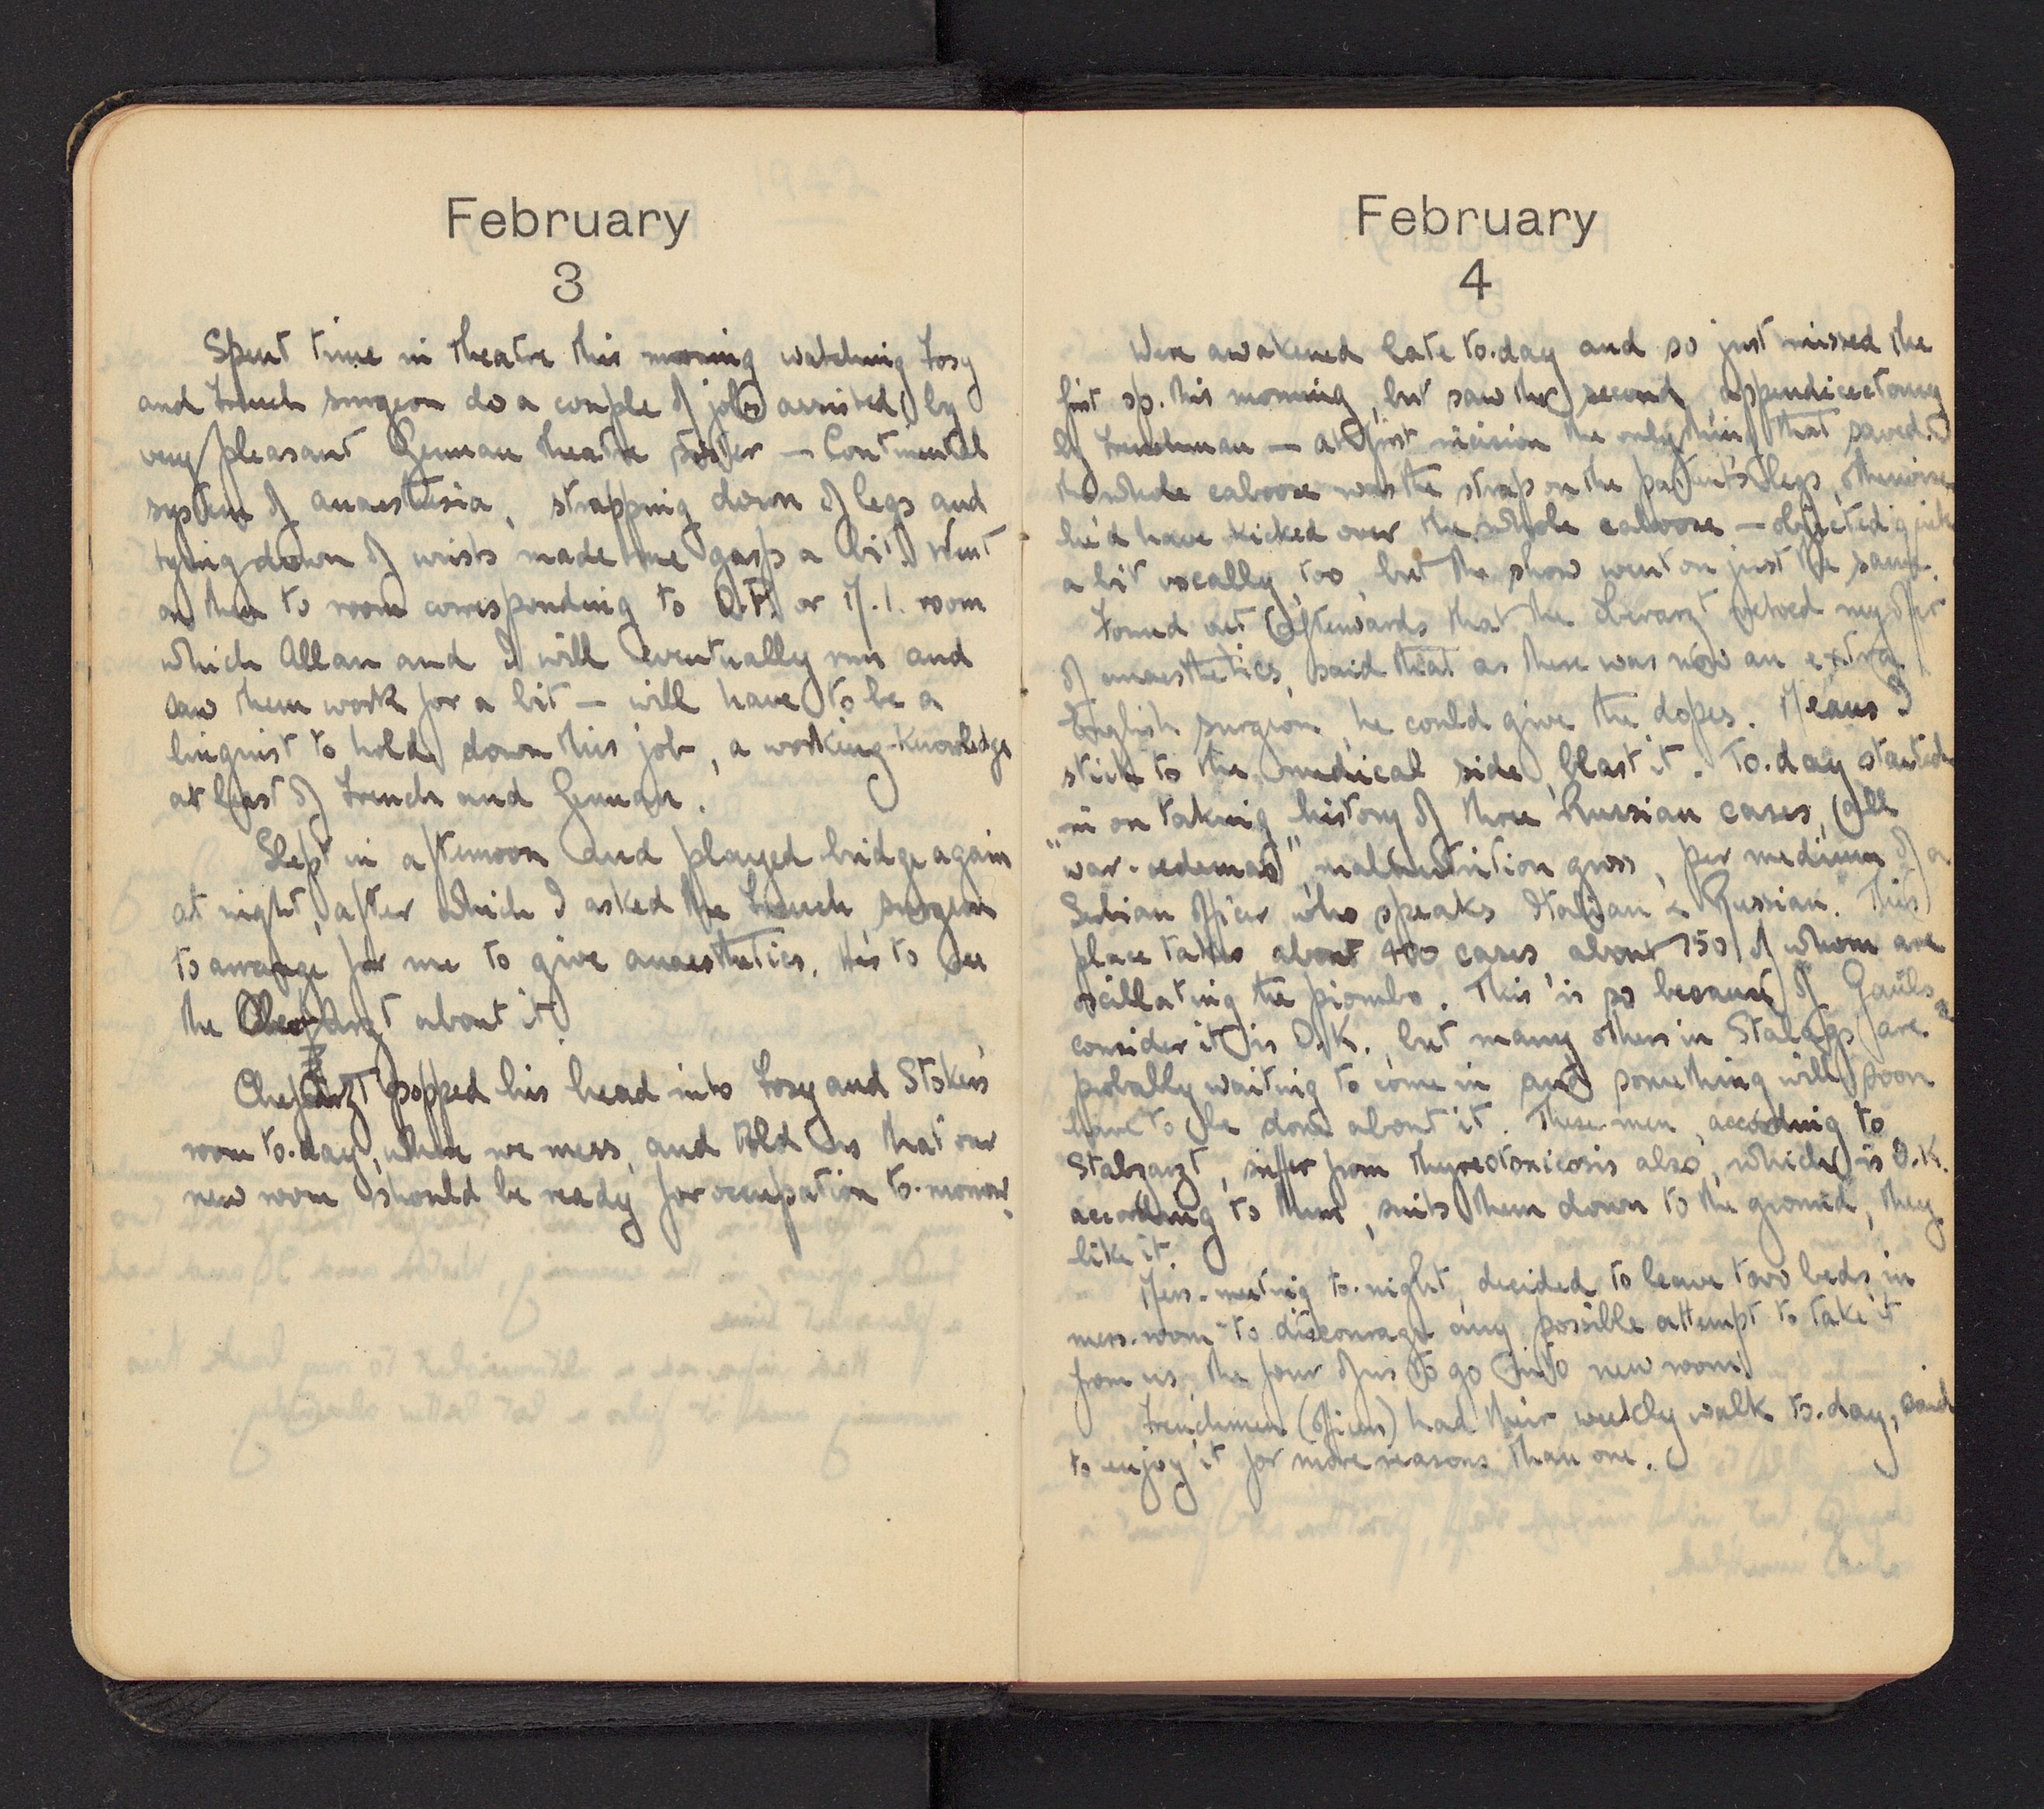 February
3
Spent time in theatre this morning watching Foxy
and French surgeon do a couple of jobs assisted by
very pleasant German theatre sister — Continental
system of anaesthesia, strapping down of legs and
tying down of wrists made me gasp a bit. Went
on then to room corresponding to O.P. or M.I. room
which Allan and I will eventually run and
saw them work for a bit — will have to be a
linguist to hold down this job, a working-knowledge
at least of French and German.
Slept in afternoon and played bridge again
at night, after which I asked the French surgeon
to arrange for me to give anaesthetics. He's to see
the Oberarzt about it.
Chefarzt popped his head into Foxy and Stoken's
room to-day, where we mess, and told us that our
new room should be ready for occupation to-morrow.
February
4
Were awakened late to-day and so just missed the
first op. this morning, but saw the second, appendicectomy
by Frenchman — at first incision the only thing that saved
the whole caboose was the strap on the patient's legs, otherwise
he'd have kicked over the whole caboose — objected quite
a bit vocally, too, but the show went on just the same.
Found out afterwards that the Oberarzt vetoed my offer
of anaesthetics, said that as there was now an extra
English surgeon, he could give the dopes. Means I
stick to the medical side, blast it. To-day started
in on taking history of three Russian cases, (all
"war-oedemas", malnutrition gross, per medium of a
Serbian officer who speaks Italian & Russian. This
place takes about 400 cases about 150 of whom are
oscillating the piombo. This is so because of Gauls
consider it is O.K., but many others in Stalags are
probably waiting to come in and something will soon
have to be done about it. These men, according to
Stabzarzt, suffer from thyreotoxicosis also, which is O.K.
according to them, suits them down to the ground, they
like it.
Mess-meeting to-night, decided to leave two beds in
mess-room to discourage any possible attempt to take it
from us, the four of us to go into new room.
Frenchmen (officers) had their weekly walk to-day, said
to enjoy it for more reasons than one.